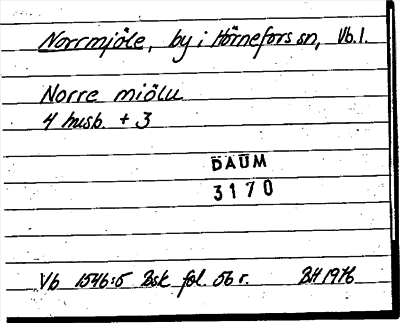 Norrmjöle, by i Hörnefors sn, Vb.l.
Norre miölu
4 husb. + 3
DAUM
3170
Vb 1546:5 Bsk fol. 56 r. BH 1976